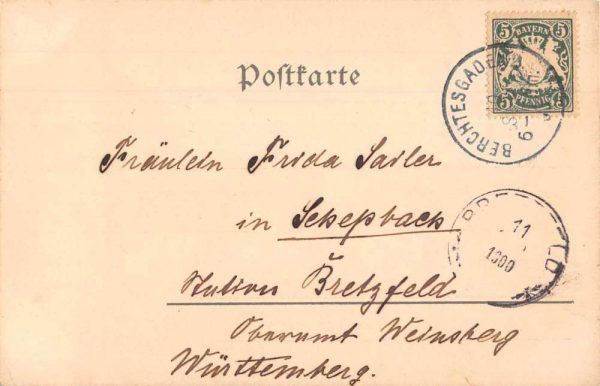 5 BAYERN 5
5 PFENNIG 5
BERCHTESGADEN
Postkarte
Fräulein Frida Sailer
in Schepbach
11
1900
Station Bretzfeld
Oberamt Weinsberg
Württemberg.